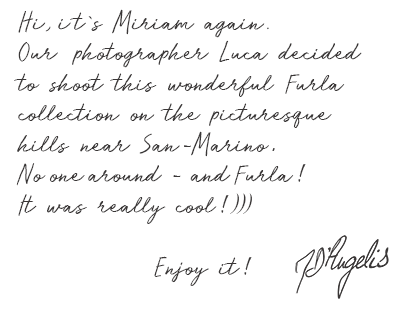 Hi, it's Miriam again.
Our photographer Luca decided
to shoot this wonderful Furla
collection on the picturesque
hills near San-Marino.
No one around - and Furla!
It was really cool!)))
Enjoy it!
D'Angelis